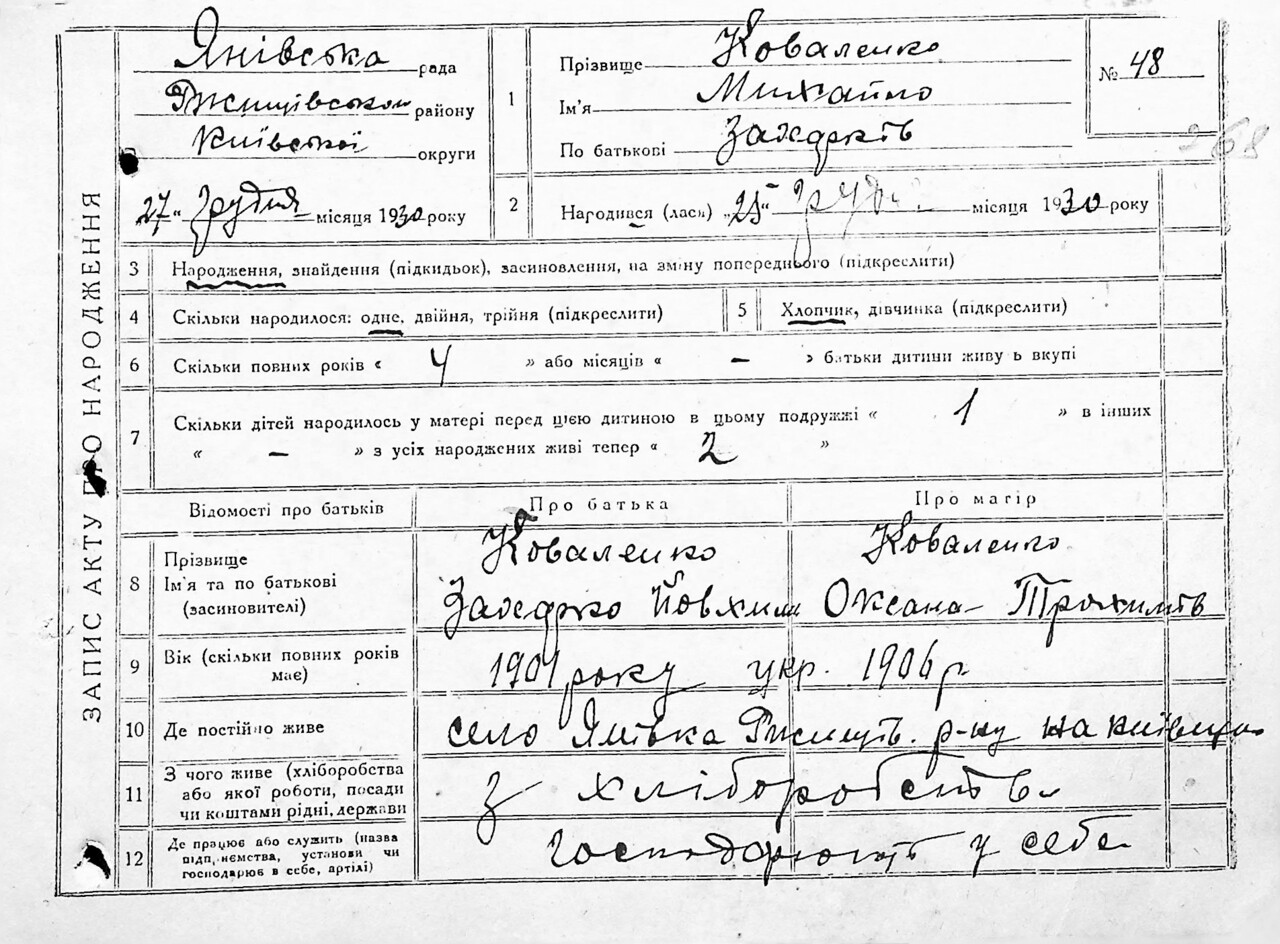 ЗАПИС АКТУ ПРО НАРОДЖЕННЯ
Янівська рада
Ржищівського району
Київської округи
27 " грудня місяця 1930 року
1 Прізвище Коваленко
Ім'я Михайло
По батькові Захарків
№ 48
268
2 Народився (лася) „25" грудн. місяця 1930 року
3 Народження, знайдення (підкидьок), засиновлення, на зміну попереднього (підкреслити)
4 Скільки народилося: одне, двійня, трійня (підкреслити)
5 Хлопчик, дівчинка (підкреслити)
6 Скільки повних років « 4 » або місяців « – » батьки дитини живу ь вкупі
7 Скільки дітей народилось у матері перед цією дитиною в цьому подружжі « 1 » в інших
« – » з усіх народжених живі тепер « 2 »
Відомості про батьків Про батька Про матір
8 Прізвище
Ім'я та по батькові
(засиновителі)
Коваленко Коваленко
Захарко Йовхим Оксана Трохимів
9 Вік (скільки повних років
має)
1901 року укр. 1906 р.
10 Де постійно живе
село Янівка Ржищів. р-ну на Київщині
11 З чого живе (хліборобства
або якої роботи, посади
чи коштами рідні, держави
З хліборобства
12 Де працює або служить (назва
підприємства, установи чи
господарює в себе, артілі)
господарюють у себе